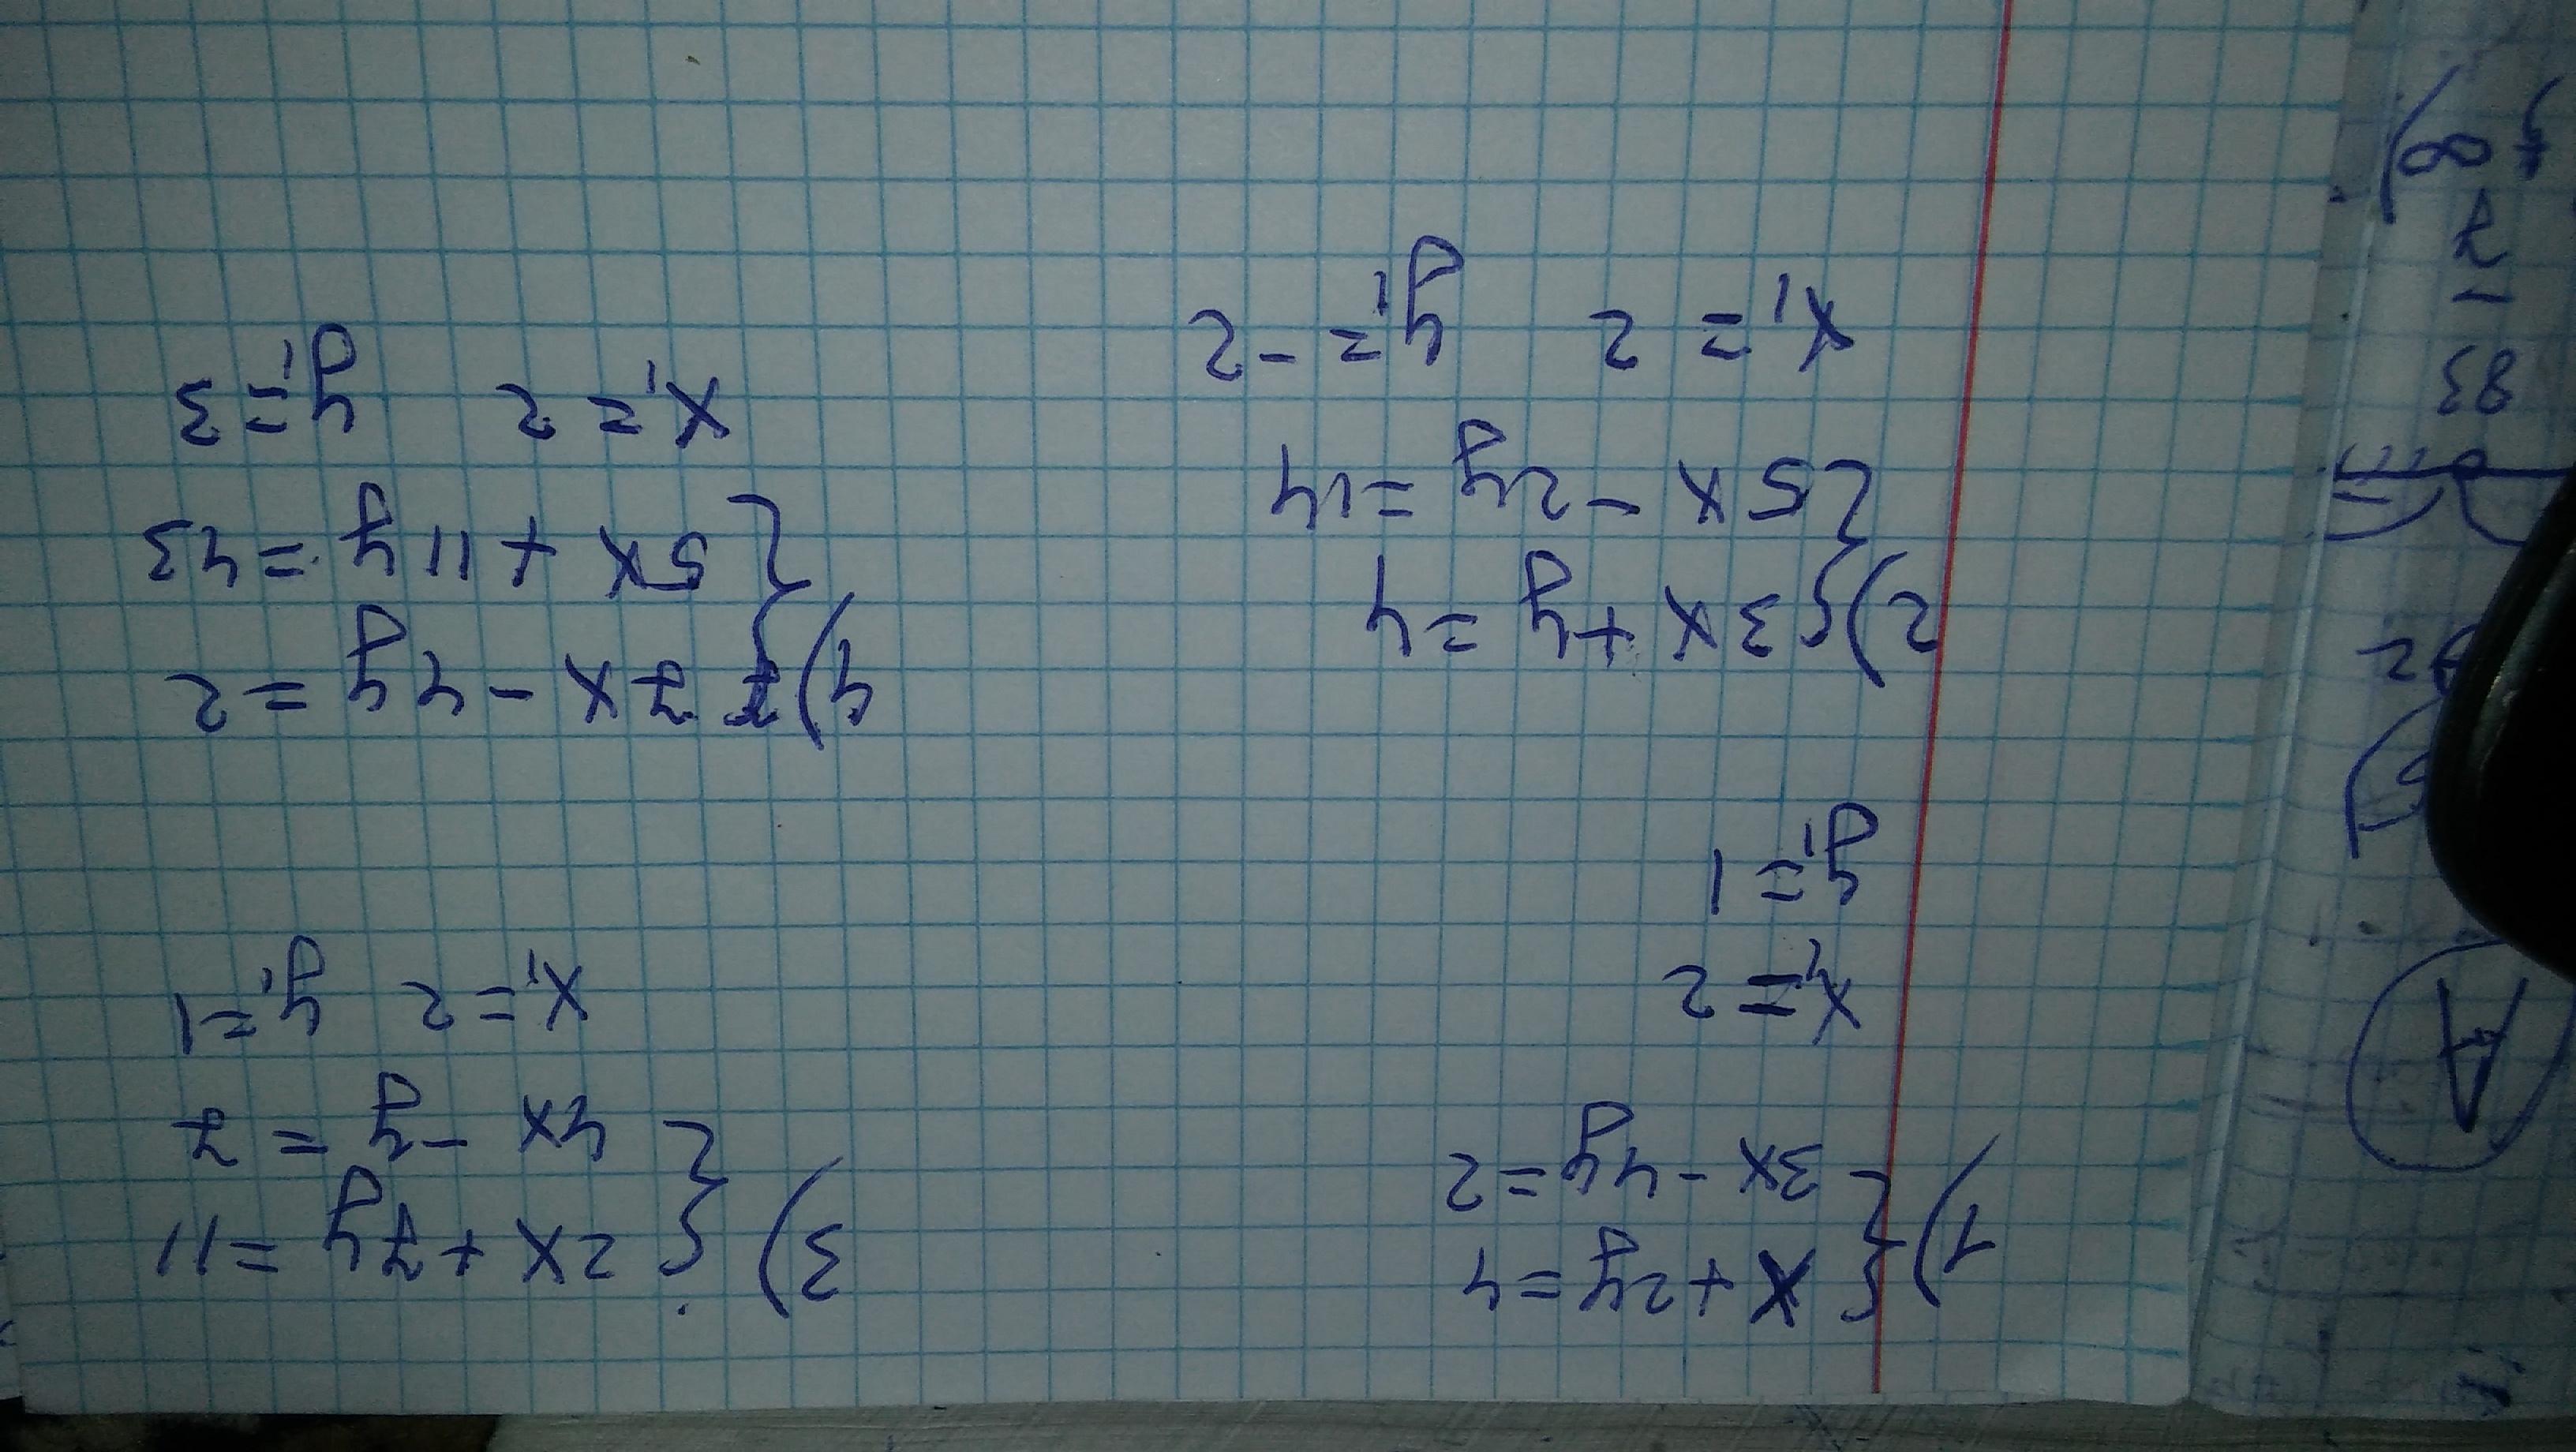 1) { x + 2y = 4
3x - 4y = 2
x₁ = 2
y₁ = 1
2) { 3x + y = 4
5x - 2y = 14
x₁ = 2 y₁ = -2
3) { 2x + 7y = 11
4x - y = 7
x₁ = 2 y₁ = 1
4) { 7x - 4y = 2
5x + 11y = 43
x₁ = 2 y₁ = 3
A
2
93
- 7
∞)